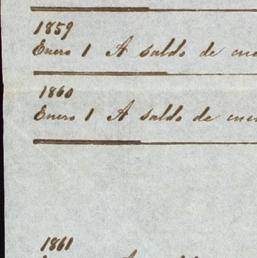 1859
Enero 1 A saldo de
1860
Enero 1 A saldo de
1861